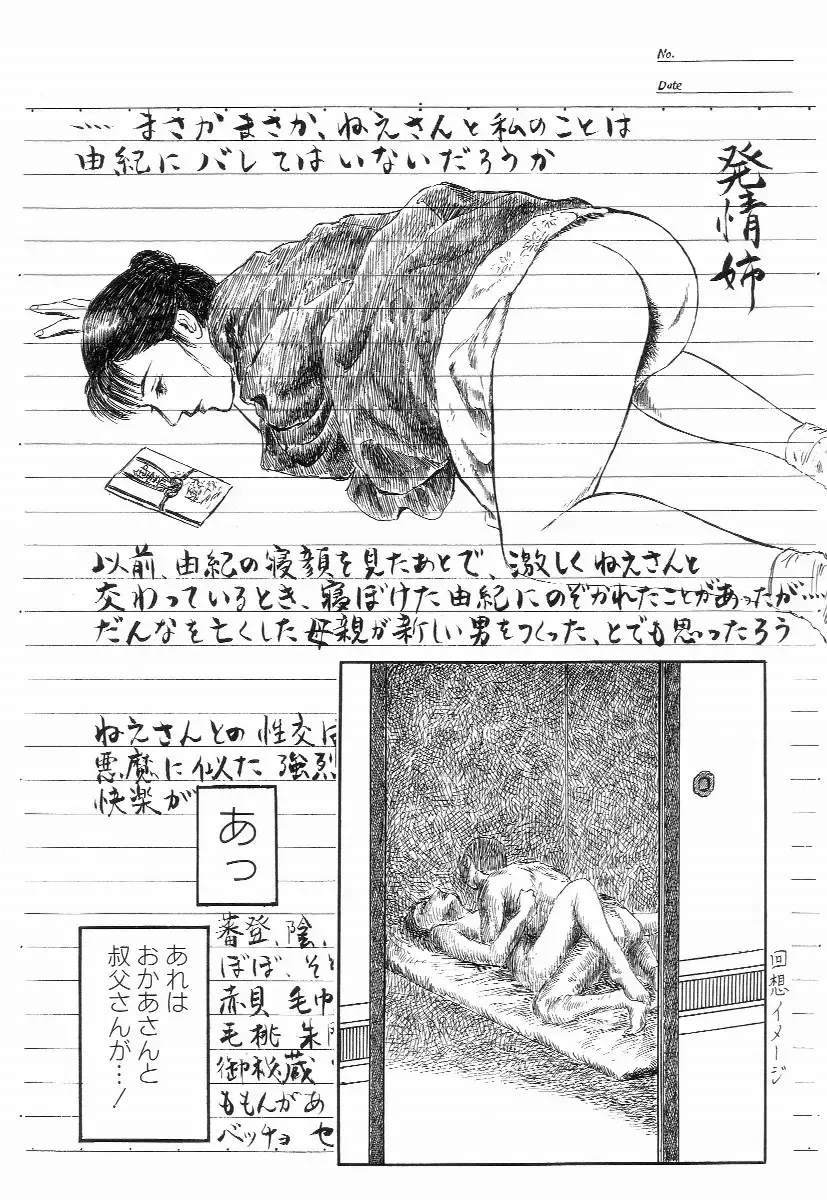 No.
Date
発情姉
…… まさかまさか、ねえさんと私のことは
由紀にバレてはいないだろうか
以前、由紀の寝顔を見たあとで、激しくねえさんと
交わっているとき、寝ぼけた由紀にのぞかれたことがあったが……
だんなを亡くした母親が新しい男をつくった、とでも思ったろう
ねえさんとの性交は
悪魔に似た 強烈
快楽が
あっ
あれは
おかあさんと
叔父さんが…！
蕃登、陰、
ぼぼ、そ
赤貝 毛巾
毛桃 朱
御秘蔵
ももんがあ
ベッチョ セ
回想イメージ